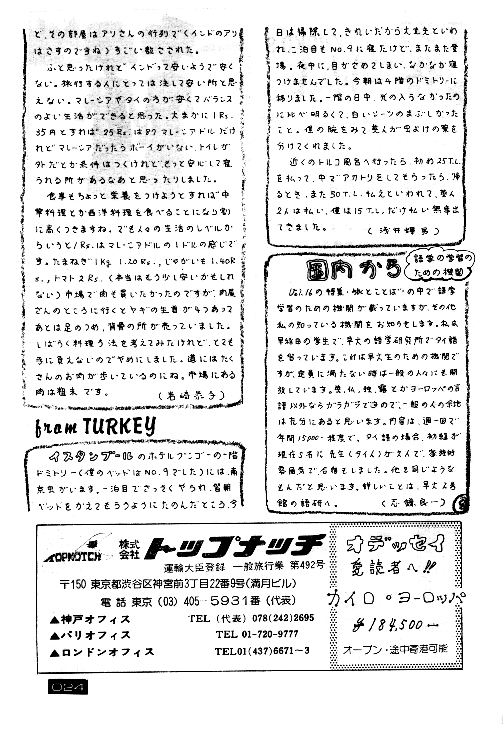 と、その部屋はアリさんの行列でくインドのアリ
はさすのですね)すごい数さされた。
ふと思ったけれどインドって安いようで安く
ない。旅行する人にとっては決して安い所と思
えない。マレーシアやタイの方が安くてバランス
のよい生活ができると思った。大まかに1Rs.
35円とすれば25Rs.は8.9マレーシアドルだけ
れどマレーシアだったらボーイがいない、トイレが
外だとか条件はつくけれど、もっと安心して寝
られる所があるなあと思ったりしました。
食事もちょっと栄養をつけようとすれば中
華料理とか西洋料理を食べることになり割
に高くつきますね。でも人々の生活のレベルか
らいうと1Rs.はマレーシアドルの1ドルの感じで
す。たまねぎ1Kg 1.20Rs.、じゃがいも1.40R
s.、トマト2Rs.(本当はもう少し安いかもしれ
ない)市場で肉も買いたかったのですが、肉屋
さんのところに行くとヤギの生首が4つあって
あとは足のつめ、背骨の所が売っていました。
しばらく料理方法を考えてみたけれど、とても
手に負えないのでやめにしました。道にはたく
さんのお肉が歩いているのにね。市場にある
肉は粗末です。
(岩崎恭子)
from TURKEY
イスタンブールのホテルグンゴーの一階
ドミトリー(僕のベッドはNo.9でした)には、南
京虫がいます。一泊目でさっそくやられ、翌朝
ベッドをかえてもらうようにたのんだところ、今
日は掃除して、きれいだから大丈夫といわ
れ、二泊目もNo.9に寝たけど、またまた登
場。夜中に、目がさめてしまい、なかなか寝
つけませんでした。今朝は4階のドミトリーに
移りました。一階の日中、光の入らなかったの
に比べ明るくて、白いシーツのまぶしかった
こと。僕の腕をみて英人が虫よけの薬を
分けてくれました。
近くのトルコ風呂へ行ったら、初め25T.L.
を払って、中でアカトリをしてもらったら、帰
るとき、また50T.L.払えといわれて、英人
2人は払い、僕は15T.L.だけ払い無事出
てきました。
(浅井輝男)
国内から
語学の学習の
ための機関
Vol.16の特集・旅とことばの中で語学
学習のための機関が載っていますが、その他
私の知っている機関をお知らせします。私は
早稲田の学生で、早大の語学研究所でタイ語
を習っています。これは早大生のための機関で
すが、定員に満たない時は一般の人々にも開
放しています。英、仏、独、露とかヨーロッパの言
語以外ならガラガラですので、一般の人の余地
は充分にあると思います。内容は、週一回で
年間15,000-程度で、タイ語の場合、初級が
現在5名に先生(タイ人)が1人で、家族的
雰囲気で、勉強しました。他も同じような
もんだと思います。詳しいことは、早大
館の語研へ。
TOPNOTCH
株式
会社
トップナッチ
運輸大臣登録 一般旅行業 第492号
〒150 東京都渋谷区神宮前3丁目22番9号(満月ビル)
電話 東京(03)405-5931番(代表)
▲神戸オフィス TEL(代表)078(242)2695
▲パリオフィス TEL 01-720-9777
▲ロンドンオフィス TEL 01(437)6671~3
オデッセイ
愛読者へ!!
カイロ・ヨーロッパ
¥184,500-
オープン・途中寄港可能
024